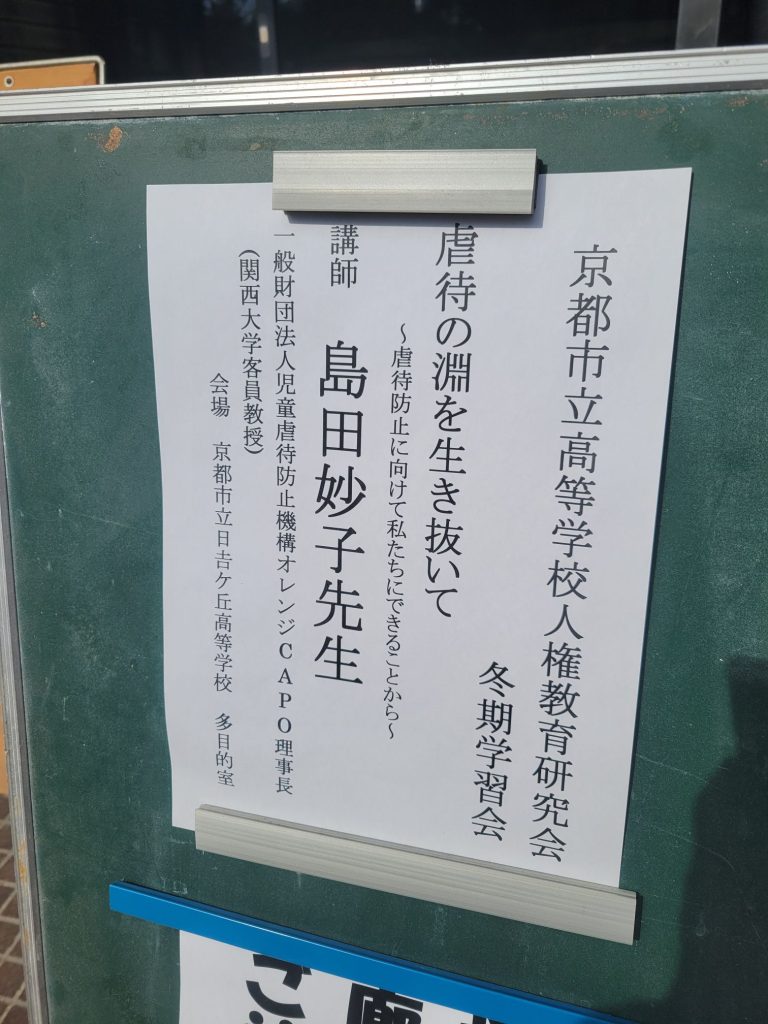 京都市立高等学校人権教育研究会
冬期学習会
虐待の淵を生き抜いて
～虐待防止に向けて私たちにできることから～
講師　島田妙子先生
一般財団法人児童虐待防止機構オレンジCAPO理事長
(関西大学客員教授)
会場　京都市立日吉ケ丘高等学校　多目的室